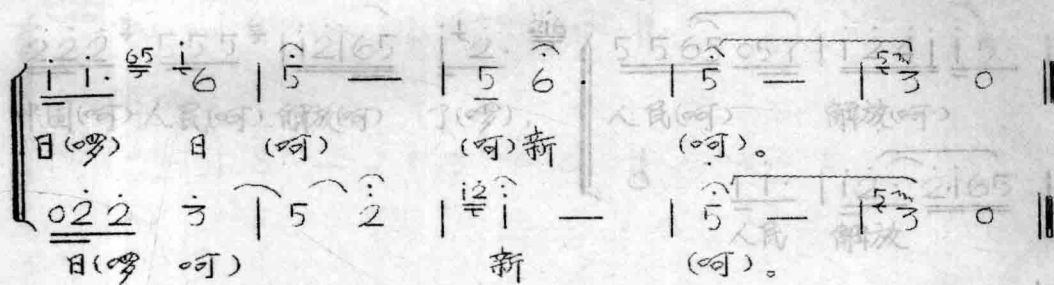 i i· 65 i 6 | 5 — | 5 6· | 5 — | 5 3 0 ‖
日(啰) 日 (呵) (呵)新 (呵)。
0 2 2 3 | 5 2 | i2 i — | 5 — | 5 3 0 ‖
日(啰 呵) 新 (呵)。